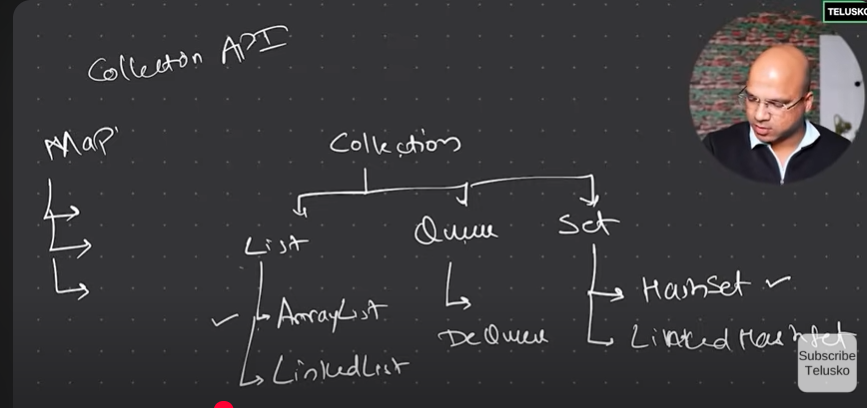 TELUSKO
Collection API
Map
Collection
List
Queue
Set
ArrayList
LinkedList
DeQueue
HashSet
LinkedHashSet
Subscribe
Telusko